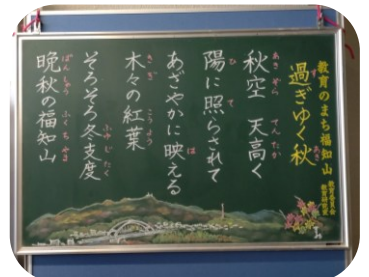 教育のまち福知山
教育委員会
教育研究所
過ぎゆく秋
秋空 天高く
陽に照らされて
あざやかに映える
木々の紅葉
そろそろ冬支度
晩秋の福知山